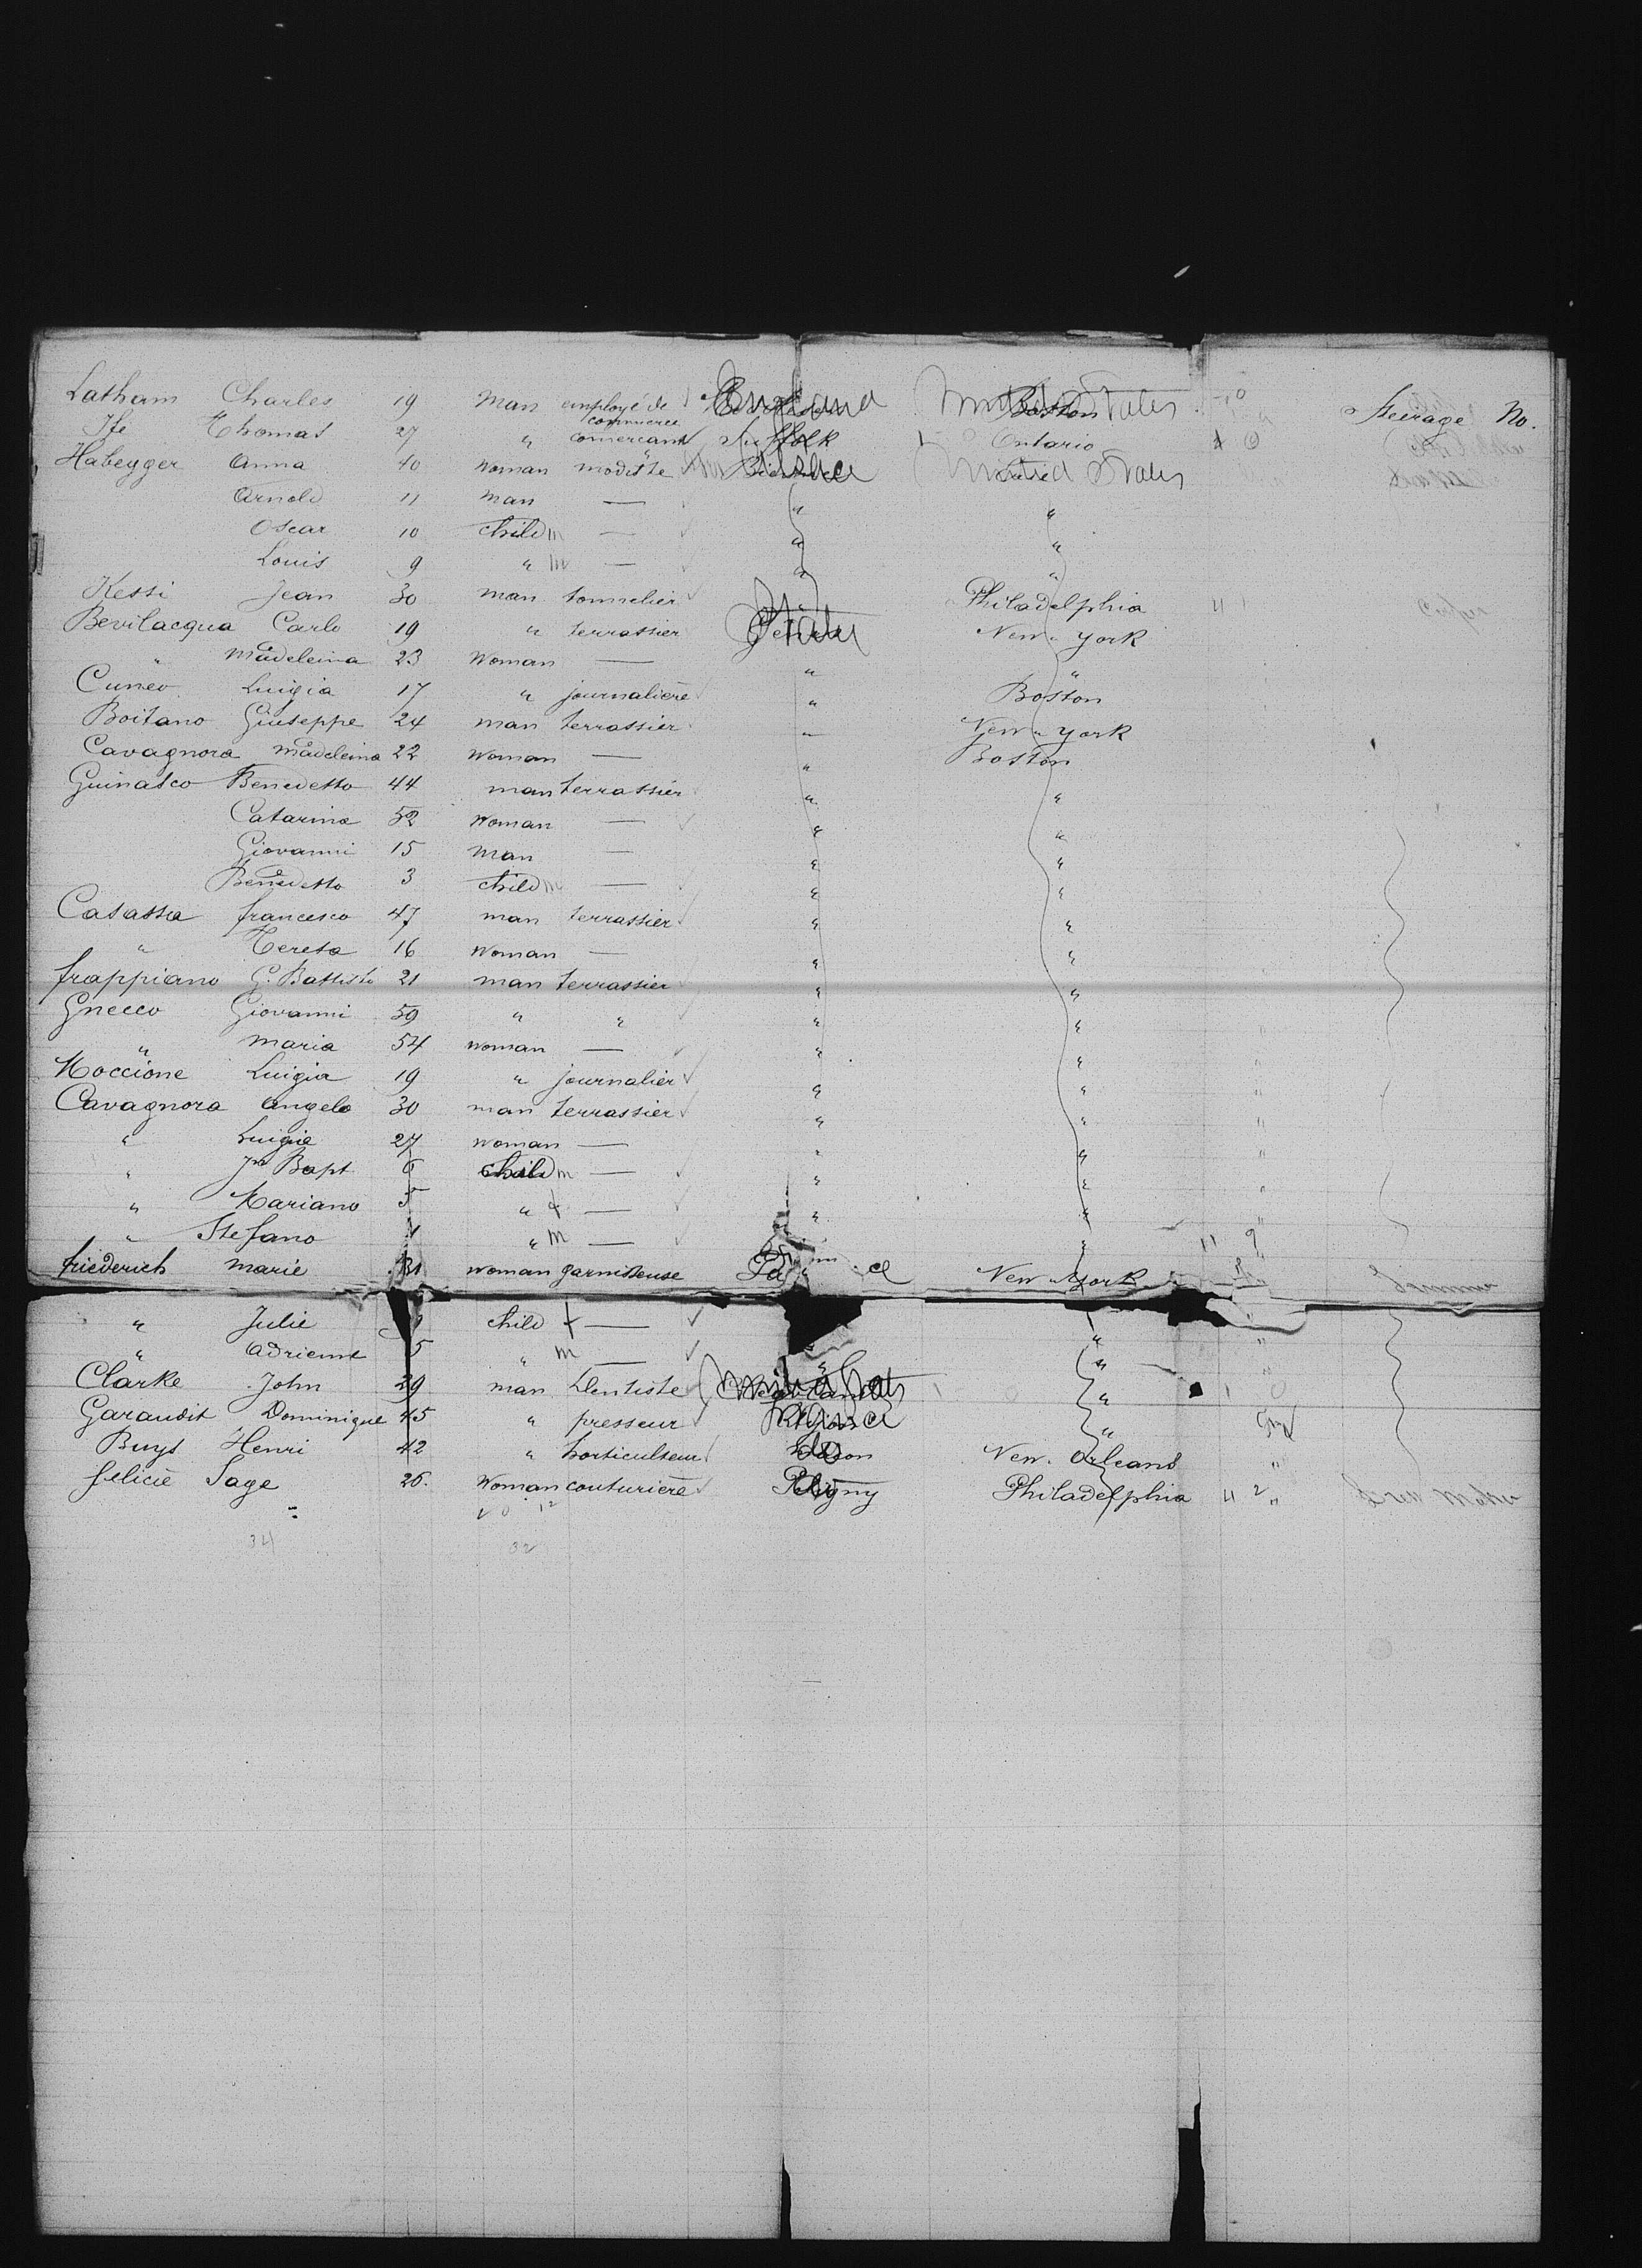 Latham Charles 19 man employé de commerce England United States Steerage No.
Ife Thomas 27 " comercant Suffolk Ontario
Habegger Anna 40 woman modiste United States
Arnold 11 man — " "
Oscar 10 child m — " "
Louis 9 " m — " "
Kessi Jean 30 man tonnelier Philadelphia
Bevilacqua Carlo 19 " terrassier Italy New-York
" Madeleina 23 woman — " "
Cuneo Luigia 17 " journalière " Boston
Boitano Giuseppe 24 man terrassier " New-York
Cavagnora Madeleina 22 woman — " Boston
Guinasco Benedetto 44 man terrassier " "
Catarina 52 woman — " "
Giovanni 15 man — " "
Benedetto 3 child m — " "
Casassa francesco 47 man terrassier " "
" Teresa 16 woman — " "
frappiano G. Battista 21 man terrassier " "
Gnecco Giovanni 59 " " " "
" Maria 54 woman — " "
Moccione Luigia 19 " journalier " "
Cavagnora Angelo 30 man terrassier " "
" Luigia 27 woman — " "
" Jn Bapt 6 child m — " "
" Mariano 5 " f — " "
" Stefano 1 " m — " "
friederich marie 31 woman garnisseuse New-York
" Julie child f — "
" Adrienne 5 " m — " "
Clarke John 29 man Dentiste "
Garaudit Dominique 45 " presseur "
Buys Henri 42 " horticulteur New-Orleans "
felicie Sage 26. woman couturière Poligny Philadelphia 11 2 " Dress Maker
34 32